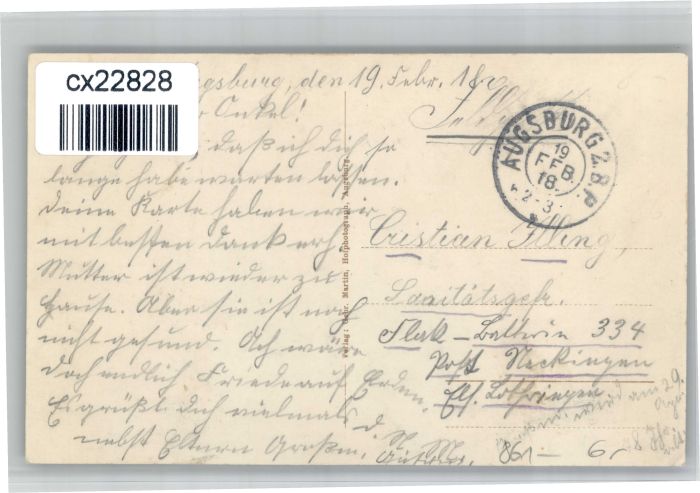 cx22828
gsburg, den 19. Febr. 18
Onkel!
daß ich dich so
lange habe warten lassen.
Deine Karte haben wir
mit besten Dank erh.
Mutter ist wieder zu
Hause. Aber sie ist noch
nicht gesund. Ach wäre
doch endlich Friede auf Erden.
Es grüßt dich vielmals d.
nebst Eltern
Verlag: Gebr. Martin, Hofphotograph, Augsburg.
AUGSBURG 2 B.P.
19
FEB
18
2-3
Cristian Illing,
Sanitätsgefr.
Flak-Batterie 334
Post Neckingen
Els. Lothringen
861- 6,-